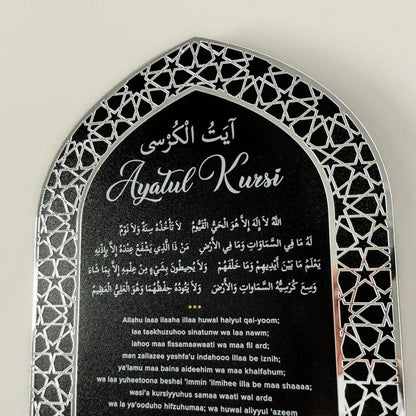 آيَتُ الْكُرْسِى
Ayatul Kursi
اللهُ لَا إِلَهَ إِلاَّ هُوَ الْحَيُّ الْقَيُّومُ لاَ تَأْخُذُهُ سِنَةٌ وَلاَ نَوْمٌ
لَهُ مَا فِي السَّمَاوَاتِ وَمَا فِي الأَرْضِ مَن ذَا الَّذِي يَشْفَعُ عِنْدَهُ إِلاَّ بِإِذْنِهِ
يَعْلَمُ مَا بَيْنَ أَيْدِيهِمْ وَمَا خَلْفَهُمْ وَلاَ يُحِيطُونَ بِشَيْءٍ مِنْ عِلْمِهِ إِلاَّ بِمَا شَاءَ
وَسِعَ كُرْسِيُّهُ السَّمَاوَاتِ وَالأَرْضَ وَلاَ يَؤُدُهُ حِفْظُهُمَا وَهُوَ الْعَلِيُّ الْعَظِيمُ
Allahu laaa ilaaha illaa huwal haiyul qai-yoom;
laa taakhuzuhoo sinatunw wa laa nawm;
lahoo maa fissamaawaati wa maa fil ard;
man zallazee yashfa'u indahooo illaa be iznih;
ya'lamu maa baina aideehim wa maa khalfahum;
wa laa yuheetoona beshai 'immin 'ilmihee illa be maa shaaaa;
wasi'a kursiyyuhus samaa waati wal arda
wa la ya'ooduho hifzuhumaa; wa huwal aliyyul 'azeem